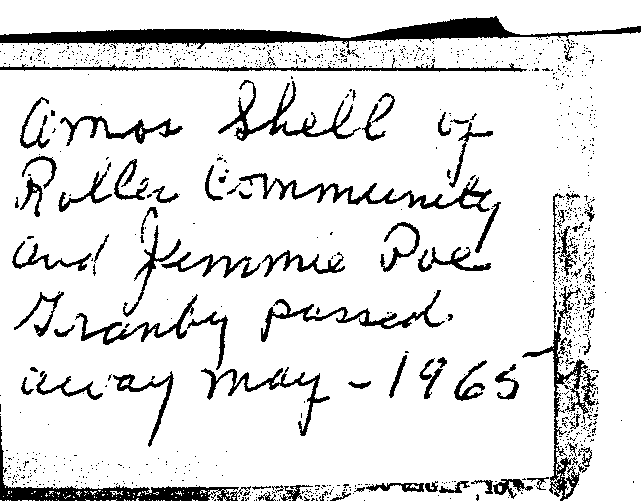 Amos Shell of
Roller Community
and Jimmie Poe
Granby passed
away may - 1965